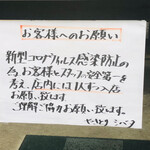 お客様へのお願い
新型コロナウィルス感染防止の
為、お客様とスタッフの安全第一を
考え、店内には1人ずつ入店
お願い致します
ご理解ご協力お願い致します。